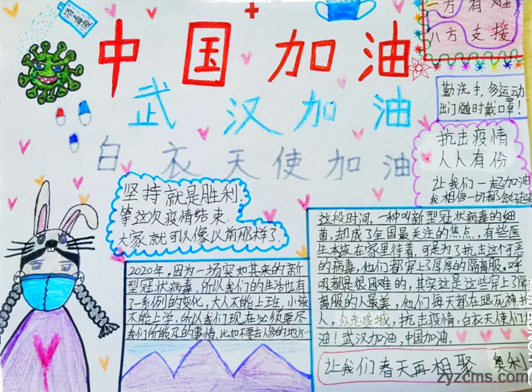 中国加油
武汉加油
白衣天使加油
消毒液
一方有难
八方支援
勤洗手,多运动
出门随时戴口罩!
抗击疫情
人人有份
让我们一起加油
我相信一切都会
坚持就是胜利
等这次疫情结束
大家就可以像以前那样了
2020年,因为一场突如其来的新
型冠状病毒,所以我们的生活也有
了一系列的变化,大人不能上班,小孩
不能上学,所以我们现在必须要尽
我们所能及的事情,比如不要去人多的地方
这段时间,一种叫新型冠状病毒的细
菌,却成了全国最关注的焦点,有些医
生本该在家里待着,可是为了抗击这个可
恶的病毒,他们都穿上了厚厚的隔离服,呼
吸都是很困难的,其实这是这些穿上了隔
离服的人最美,他们每天都在跟死神抢
人,众志成城,抗击疫情,白衣天使们加
油!武汉加油,中国加油。
让我们春天再相聚
奥利
zyzcms.com